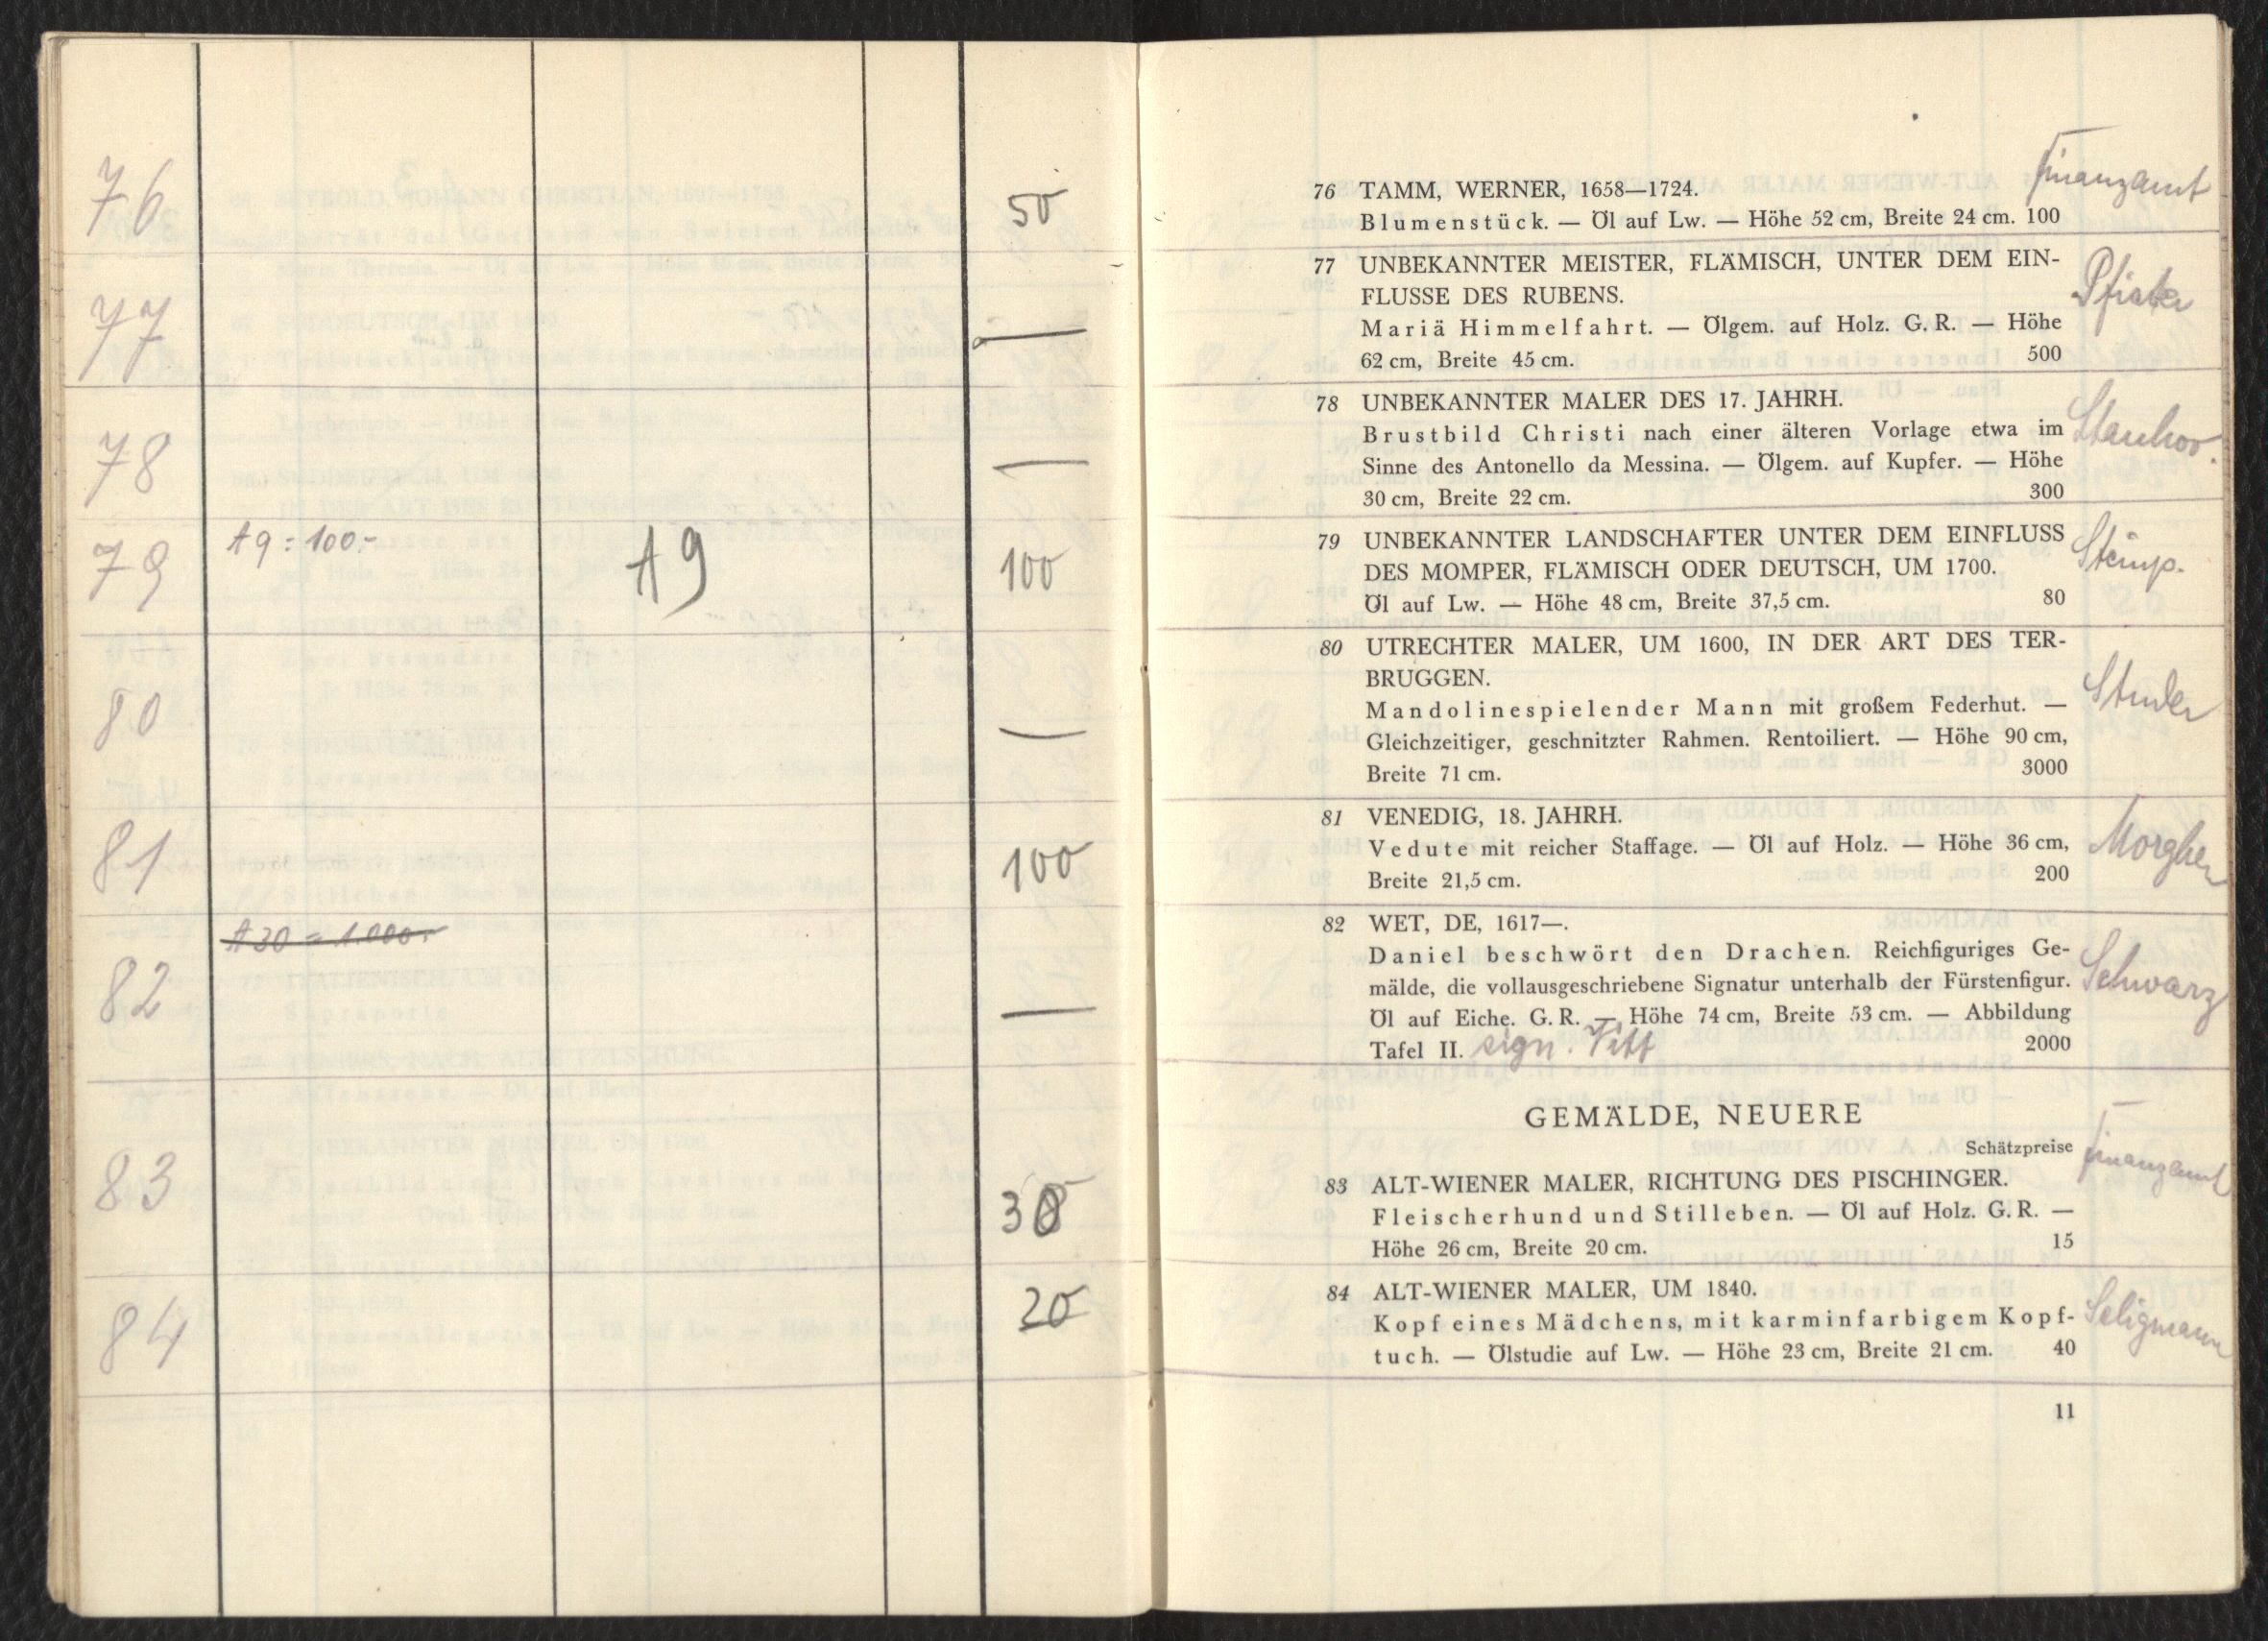 76
50
77
—
78
—
79
A9 = 100.-
A9
100
80
—
81
100
A30 = 1.000.-
82
—
83
30
84
20
Finanzamt
76 TAMM, WERNER, 1658—1724.
Blumenstück. — Öl auf Lw. — Höhe 52 cm, Breite 24 cm. 100
77 UNBEKANNTER MEISTER, FLÄMISCH, UNTER DEM EIN-
FLUSSE DES RUBENS.
Mariä Himmelfahrt. — Ölgem. auf Holz. G. R. — Höhe
62 cm, Breite 45 cm. 500
78 UNBEKANNTER MALER DES 17. JAHRH.
Brustbild Christi nach einer älteren Vorlage etwa im
Sinne des Antonello da Messina. — Ölgem. auf Kupfer. — Höhe
30 cm, Breite 22 cm. 300
79 UNBEKANNTER LANDSCHAFTER UNTER DEM EINFLUSS
DES MOMPER, FLÄMISCH ODER DEUTSCH, UM 1700.
Öl auf Lw. — Höhe 48 cm, Breite 37,5 cm. 80
80 UTRECHTER MALER, UM 1600, IN DER ART DES TER-
BRUGGEN.
Mandolinespielender Mann mit großem Federhut. —
Gleichzeitiger, geschnitzter Rahmen. Rentoiliert. — Höhe 90 cm,
Breite 71 cm. 3000
81 VENEDIG, 18. JAHRH.
Vedute mit reicher Staffage. — Öl auf Holz. — Höhe 36 cm,
Breite 21,5 cm. 200
82 WET, DE, 1617—.
Daniel beschwört den Drachen. Reichfiguriges Ge-
mälde, die vollausgeschriebene Signatur unterhalb der Fürstenfigur. Schwarz
Öl auf Eiche. G. R. — Höhe 74 cm, Breite 53 cm. — Abbildung
Tafel II. sign. 2000
GEMÄLDE, NEUERE
Schätzpreise Finanzamt
83 ALT-WIENER MALER, RICHTUNG DES PISCHINGER.
Fleischerhund und Stilleben. — Öl auf Holz. G. R. —
Höhe 26 cm, Breite 20 cm. 15
84 ALT-WIENER MALER, UM 1840.
Kopf eines Mädchens, mit karminfarbigem Kopf- Seligmann
tuch. — Ölstudie auf Lw. — Höhe 23 cm, Breite 21 cm. 40
11